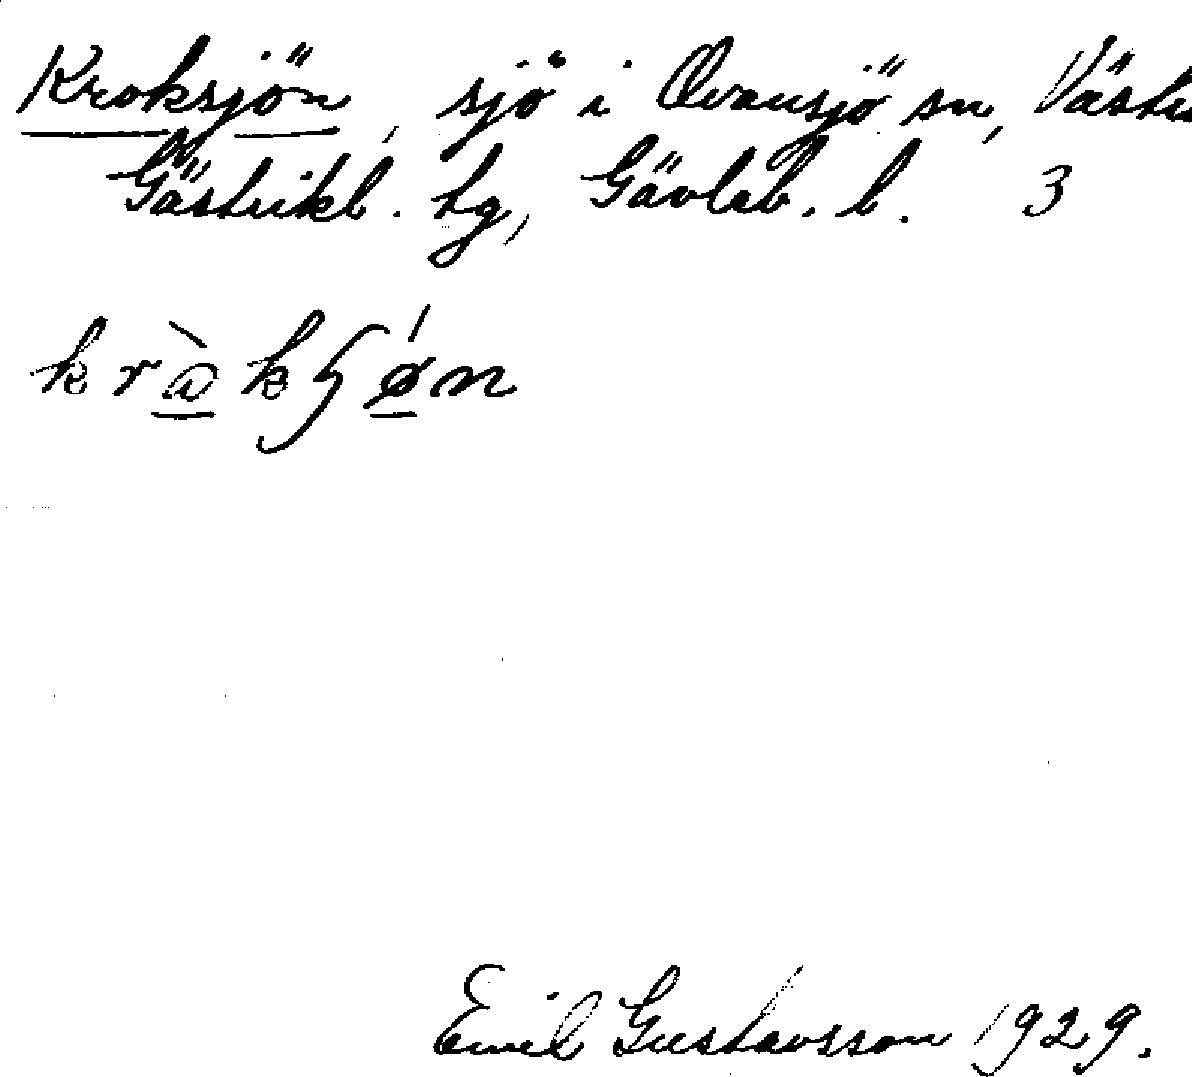 Kroksjön, sjö i Ovansjö sn, Västra
Gästrikl. tg, Gävleb. l. 3
kràkʃǿn
Emil Gustavsson 1929.